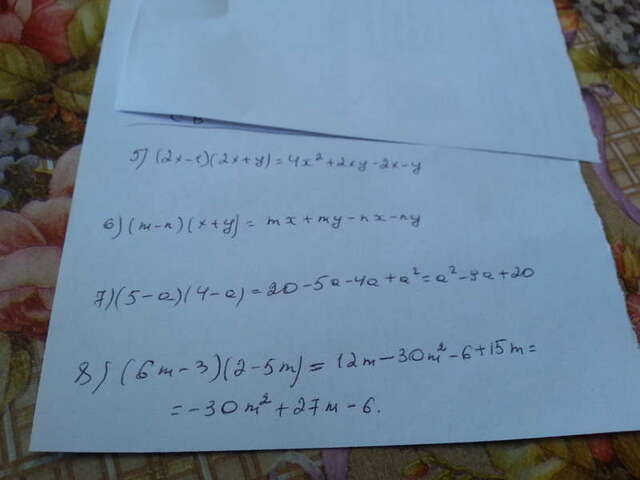 5) (2x-1)(2x+y)=4x²+2xy-2x-y
6) (m-n)(x+y)= mx+my-nx-ny
7) (5-a)(4-a)=20-5a-4a+a²=a²-9a+20
8) (6m-3)(2-5m)= 12m-30m²-6+15m=
=-30m²+27m-6.